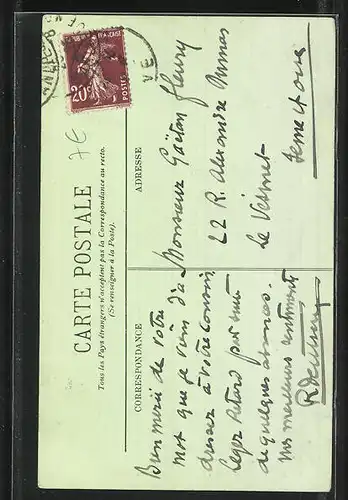 20c
POSTES
7€
CARTE POSTALE
Tous les Pays étrangers n'acceptent pas la Correspondance au recto.
(Se renseigner à la Poste).
CORRESPONDANCE
ADRESSE
Bien merci de votre
mot que je viens d'a-
dresser à votre cousin
léger retard par suite
de quelques absences.
Mes meilleurs sentiments
Monsieur Gaëtan Fleury
22 R. Alexandre Dumas
Le Vésinet
Seine et Oise